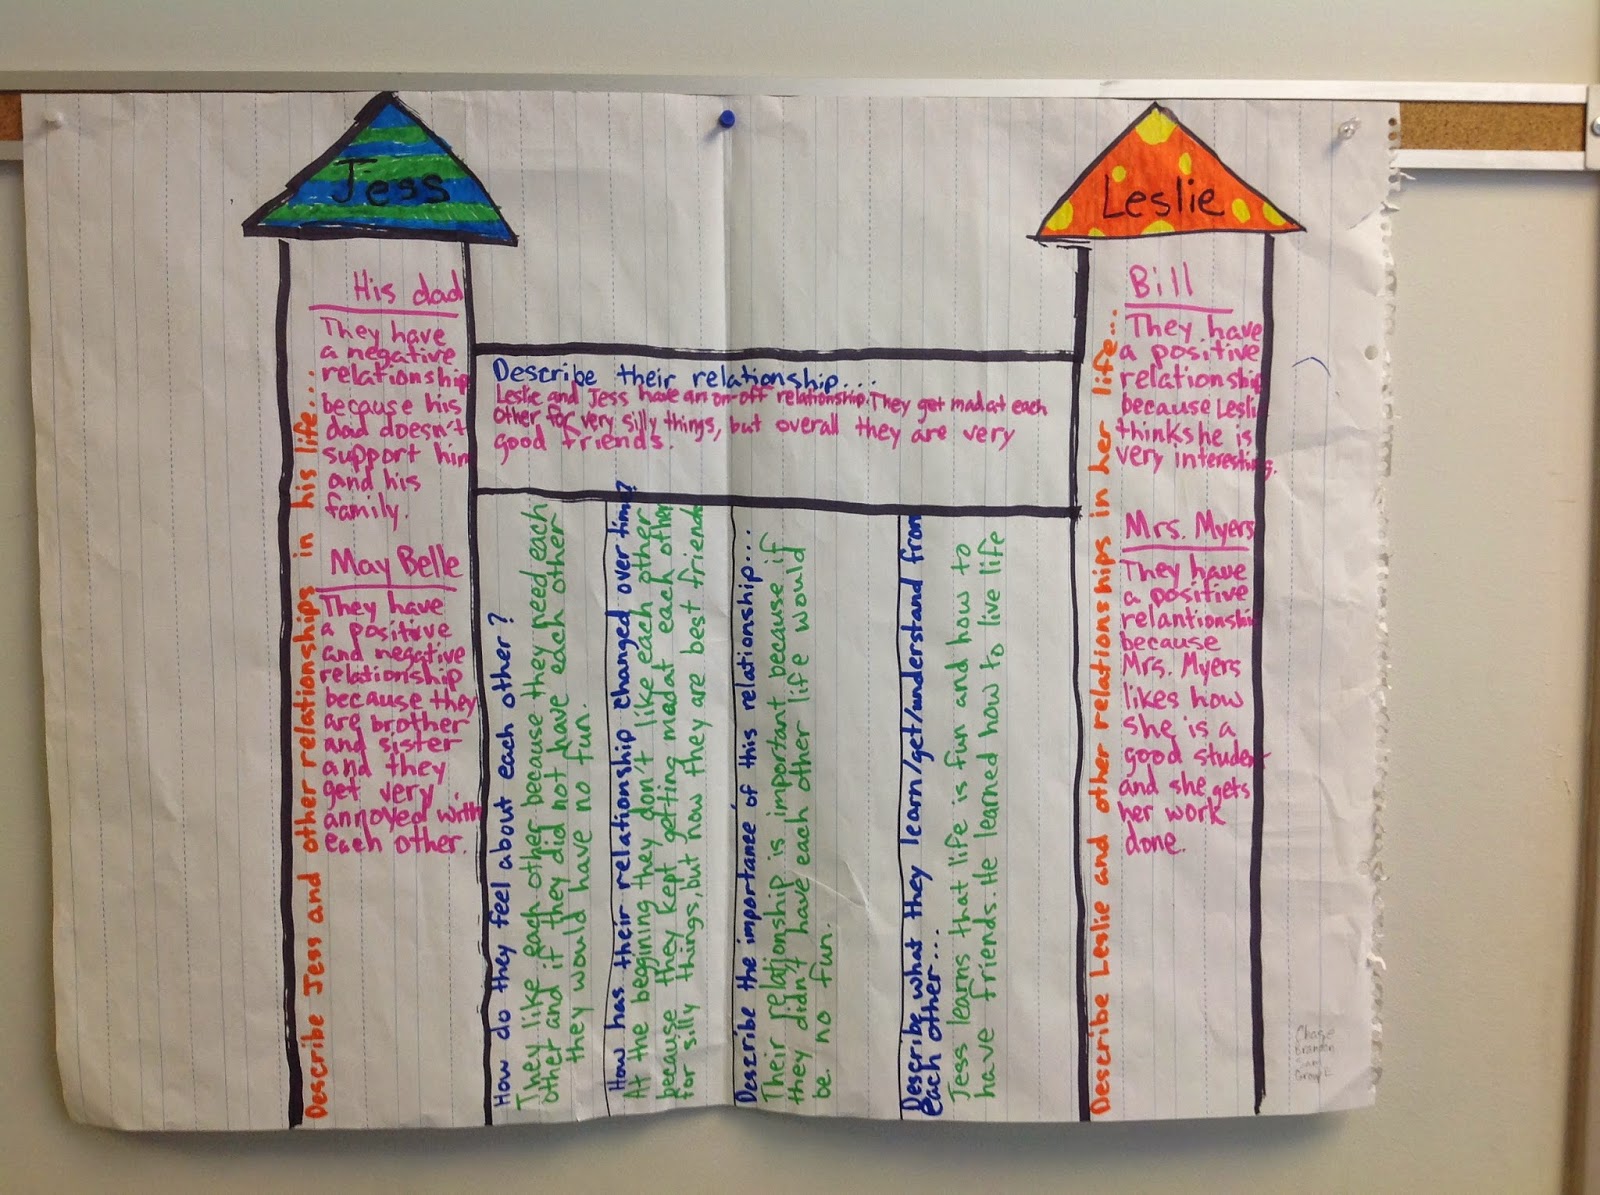 Jess
His dad
They have
a negative
relationship
because his
dad doesn't
support him
and his
family.
May Belle
They have
a positive
and negative
relationship
because they
are brother
and sister
and they
get very
annoyed with
each other.
Describe Jess and other relationships in his life...
Describe their relationship...
Leslie and Jess have an on-off relationship. They get mad at each
other for very silly things, but overall they are very
good friends.
How do they feel about each other?
They like each other because they need each
other and if they did not have each other
they would have no fun.
How has their relationship changed over time?
At the beggining they don't like each other
because they kept getting mad at each other
for silly things, but now they are best friends
Describe the importance of this relationship...
Their relationship is important because if
they didn't have each other life would
be no fun.
Describe what they learn/get/understand from
each other...
Jess learns that life is fun and how to
have friends. He learned how to live life
Leslie
Bill
They have
a positive
relationship
because Lesli
thinks he is
very interesting.
Mrs. Myers
They have
a positive
relantionshi
because
Mrs. Myers
likes how
she is a
good student
and she gets
her work
done.
Describe Leslie and other relationships in her life...
Chase
Brandon